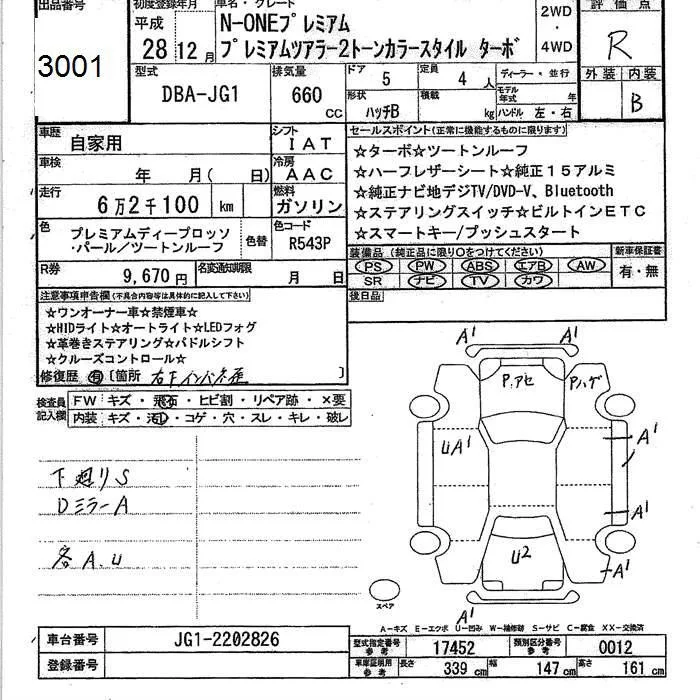 出品番号
3001
初度登録年月
平成
28 12 月
車名・グレード
N-ONEプレミアム
プレミアムツアラー2トーンカラースタイル ターボ
2WD
・
4WD
評価点
R
外装 内装
B
型式
DBA-JG1
排気量
660 cc
ドア 5
定員 4 人
形状 ハッチB
積載 kg
ディーラー・並行
モデル年式 年
ハンドル 左・右
車歴 自家用
シフト IAT
車検 年 月( 日)
冷房 AAC
走行 6万2千100 km
燃料 ガソリン
色 プレミアムディープロッソ
・パール/ツートンルーフ
色替
色コード R543P
R券 9,670円
名変通知期限 月 日
セールスポイント(正常に機能するものに限ります)
☆ターボ☆ツートンルーフ
☆ハーフレザーシート☆純正15アルミ
☆純正ナビ地デジTV/DVD-V、Bluetooth
☆ステアリングスイッチ☆ビルトインETC
☆スマートキー/プッシュスタート
装備品(純正品に限り○をつけてください)
PS PW ABS エアB AW
SR ナビ TV カワ
新車保証書
有・無
後日品
注意事項申告欄(不具合内容等は具体的に記入して下さい)
☆ワンオーナー車☆禁煙車☆
☆HIDライト☆オートライト☆LEDフォグ
☆革巻きステアリング☆パドルシフト
☆クルーズコントロール☆
修復歴 有 〔箇所 右下インパネ歪 〕
検査員記入欄
FW キズ・飛石・ヒビ割・リペア跡・×要
内装 キズ・汚レ・コゲ・穴・スレ・キレ・破レ
下廻りS
DミラーA
各A.U
A1
P.アセ
Pハゲ
UA1
A1
A1
U2
A1
A1
スペア
A-キズ E-エクボ U-凹み W-補修跡 S-サビ C-腐食 XX-交換済
車台番号 JG1-2202826
登録番号
型式指定番号参考 17452
類別区分番号参考 0012
車庫証明用参考 長さ 339 cm 幅 147 cm 高さ 161 cm